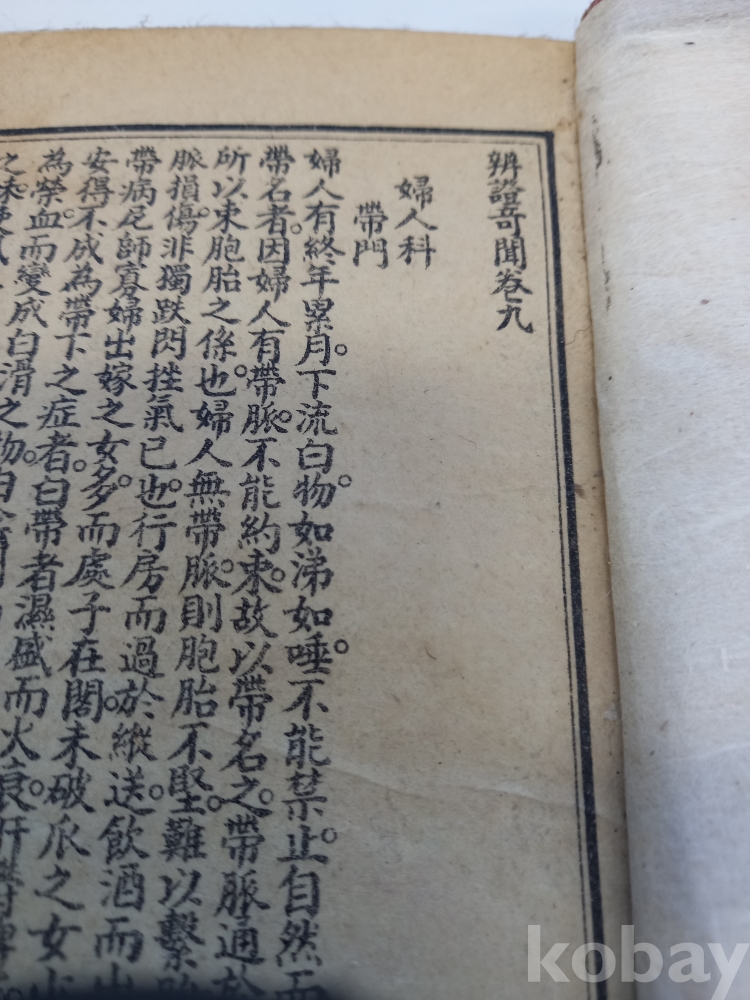 辨證奇聞卷九
婦人科
帶門
婦人有終年累月。下流白物。如涕如唾。不能禁止。自然而
帶名者。因婦人有帶脈。不能約束。故以帶名之。帶脈通於
所以束胞胎之係。也婦人無帶脈。則胞胎不堅。難以繫胎
脈損傷。非獨跌閃挫氣已也。行房而過於縱送。飲酒而出
帶病尼師寡婦出嫁之女多。而處子在閣。未破瓜之女少
安得不成為帶下之症者。白帶者濕盛而火衰。肝
為榮血。而變成白滑之物。
之
kobay